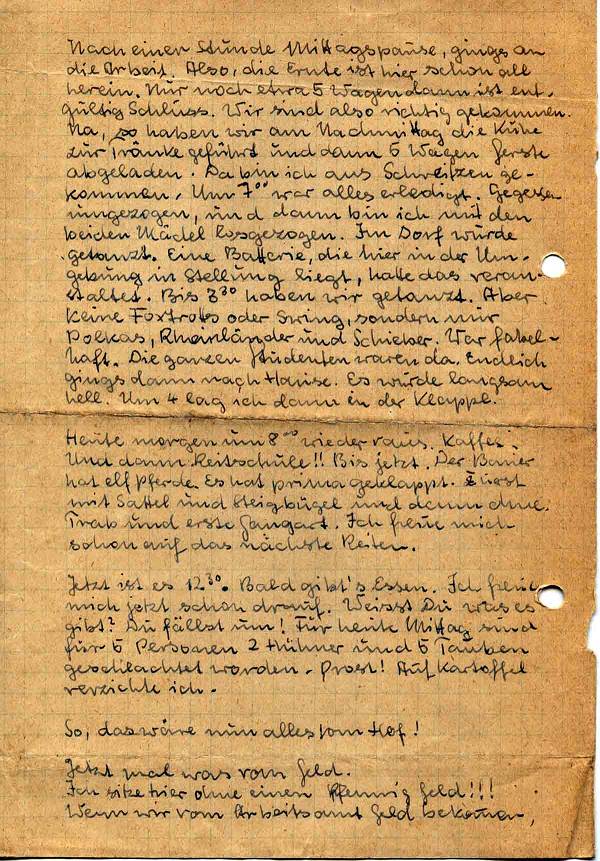 Nach einer Stunde Mittagspause, ginges an
die Arbeit. Also, die Ernte ist hier schon all
herein. Nur noch etwa 5 Wagen dann ist ent-
gültig Schluss. Wir sind also richtig gekommen.
Na, so haben wir am Nachmittag die Kühe
zur Tränke geführt und dann 5 Wagen Gerste
abgeladen. Da bin ich aus Schwitzen ge-
kommen. Um 7⁰⁰ war alles erledigt. Gegessen
umgezogen, und dann bin ich mit den
beiden Mädel losgezogen. Im Dorf wurde
getanzt. Eine Batterie, die hier in der Um-
gebung in Stellung liegt, hatte das veran-
staltet. Bis 3³⁰ haben wir getanzt. Aber
keine Foxtrotts oder Swing, sondern nur
Polkas, Rheinländer und Schieber. War fabel-
haft. Die ganzen Studenten waren da. Endlich
gings dann nach Hause. Es wurde langsam
hell. Um 4 lag ich dann in der Klappe.
Heute morgen um 8⁰⁰ wieder raus. Kaffee.
Und dann Reitschule!! Bis jetzt. Der Bauer
hat elf Pferde. Es hat prima geklappt. Zuerst
mit Sattel und Steigbügel und dann ohne.
Trab und erste Gangart. Ich freue mich
schon auf das nächste Reiten.
Jetzt ist es 12³⁰. Bald gibt's Essen. Ich freue
mich jetzt schon drauf. Weisst Du was es
gibt? Du fällst um! Für heute Mittag sind
für 6 Personen 2 Hühner und 5 Tauben
geschlachtet worden. Prost! Auf Kartoffel
verzichte ich.
So, das wäre nun alles vom Hof!
Jetzt mal was vom Geld.
Ich sitze hier ohne einen Pfennig Geld!!!
Wenn wir vom Arbeitsamt Geld bekommen,